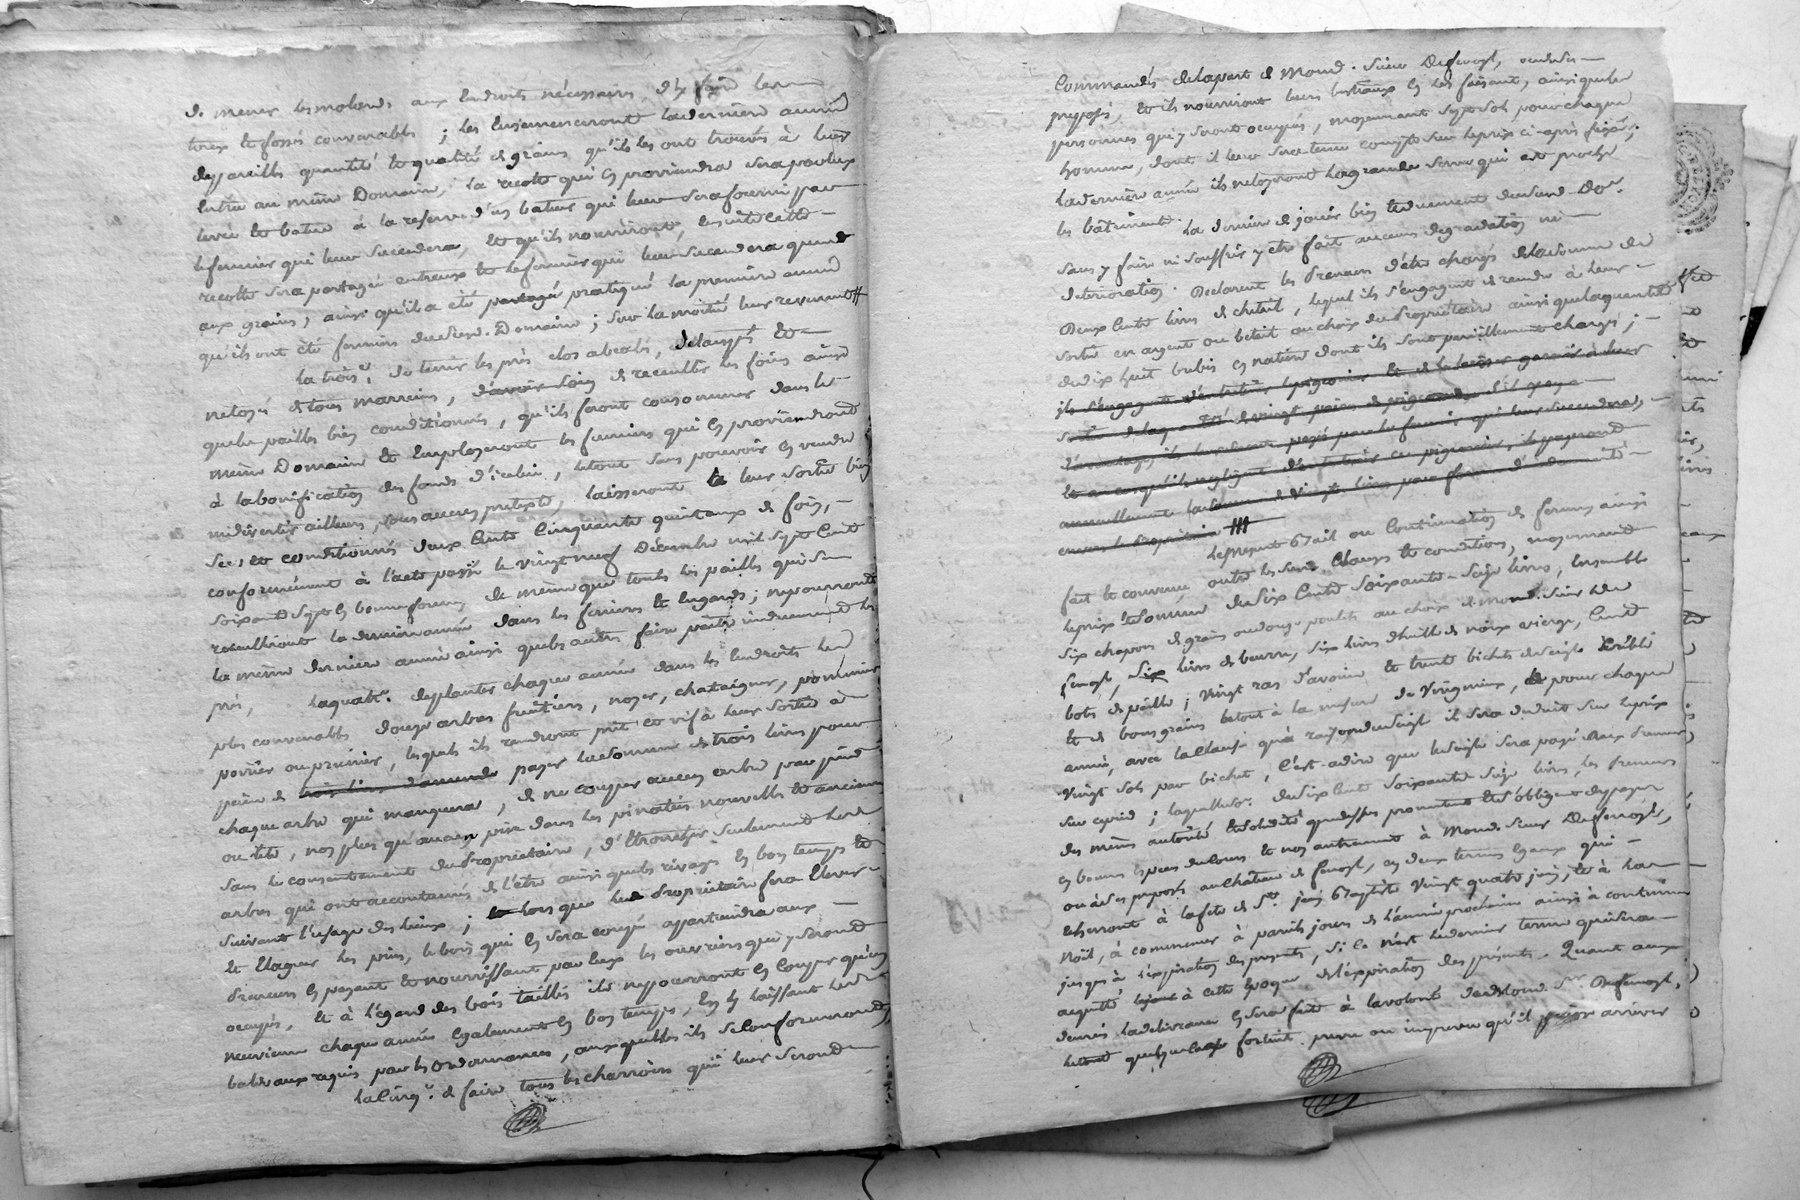 de mener les molonds aux Endroits nécessaires, d'y faire les
terex et fossés convenables ; les Ensemenceront laderniere année
de pareilles quantité et qualité de grains qu'ils les ont trouvés à leur
Entrée au même Domaine, la recolte qui En proviendra sera par eux
levée et batue à la reserve d'un bateur qui leur sera fourni par
le fermier qui leur succedera, et qu'ils nourriront, ensuite cette
recolte sera partagée entreux et le fermier qui leur succedera quand
aux grains, ainsi qu'il a été partagé pratiqué la premiere année
qu'ils ont été fermiers dudit. Domaine ; sur la moitié leur revenant #
la trois.e de tenir les prés clos abealés, et
netoyés de tous marreins, d'avoir soin de recueillir les foins ainsi
que les pailles bien conditionnés, qu'ils feront consommer dans le
même Domaine et Employeront les fumiers qui En proviendront
à la bonification des fonds d'icelui, le tout sans pouvoir En vendre
ni divertir ailleurs, sous aucun pretexte, laisseront à leur sortie bien
secs et conditionnés deux Cents Cinquante quintaux de foin,
conformément à l'acte passé le vingt neuf Décembre mil sept Cent
soixante Sept En bonne forme, de même que toutes les pailles qui se
recueilliront la derniere année dans les feniers et hugards ; ne pourront
la même derniere année ainsi que les autres faire paitre induement les
prés, la quatr.e de planter chaque année dans les Endroits les
plus convenables douze arbres fruitiers, noyer, chataigner, pommier
poirier ou prunier, lesquels ils rendront prit et vif à leur sortie à
peine de trois livres d'amende payer la somme de trois livres pour
chaque arbre qui manquera, de ne couper aucun arbre par pied
ou tête, non plus qu'aucun pin dans les pinatées nouvelles et anciennes
sans le consentement du Propriétaire, d'Etroncher seulement les
arbres qui ont accoutumés de l'être ainsi que les rivages En bon temps et
suivant l'usage des lieux ; et lorsque led. Propriétaire fera Elever
et Elaguer les pins, le bois qui En sera coupé appartiendra aux
Preneurs En payant et nourrissant par Eux les ouvriers qui y seront
occupés, Et à l'egard des bois taillis ils ne pourront En couper qu'un
neuvieme chaque année Egalement En bon temps, En y laissant les
baliveaux requis par les Ordonnances, auxquelles ils se conformeront,
la Cinq.e de faire tous les charrois qui leur seront
Commandés de la part de Mond. Sieur Dufenoyl, ou de ses
preposés, Et ils nourriront leurs bestiaux En les faisant, ainsi que les
personnes qui y seront occupés, moyennant sept sols pour chaque
homme, dont il leur sera tenu compte sur le prix ci-après fixé,
la derniere année ils netoyeront la grande serve qui est proche
les bâtiments. La derniere de jouir bien et duement dud. Do.e
sans y faire ni souffrir y etre fait aucune degradation ni
deterioration. Declarent les Preneurs d'être chargés de la somme de
Deux Cents livres de cheteil, lequel ils s'engagent de rendre à leur
sortie en argent ou betail au choix du Propriétaire ainsi que la quantité
de dix huit brebis En nature dont ils sont pareillement chargés ;
ils s'engagent d'entretenir le pigeonier et de le laisser garni à leur
sortie de la quantité de vingt paires de pigeons, s'il y en a
d'avantage ils leur seront payés par le fermier qui leur succedera,
et au cas qu'ils negligent d'entretenir ce pigeonier, ils payeront
annuellement la somme de vingt livres par forme d'indemnité
envers le Propriétaire #
le present Bail ou Continuation de ferme ainsi
fait et convenu outre les susd. Charges et conditions, moyennant
le prix et somme de Six Cents Soixante-Seize livres, Ensemble
six chapons de grains ou douze poulets au choix de Mond. Sieur Du
fenoyl, Six livres de beurre, six livres d'huille de noix vierge, Cent
bots de paille ; vingt ras d'avoine et trente bichets de seigle Criblé
et de bons grains le tout à la mesure de Virigneux, et pour chaque
année, avec la clause qu'à raison du seigle il sera deduit sur le prix
vingt sols par bichet, c'est-adire que le seigle sera payé aux Preneurs
sur ce pied ; laquelle so.e de Six Cent Soixante Seize livres, les Preneurs
des mêmes autorité et solidité que dessus promettent et s'obligent de payer
En bonnes Especes de Cours et non autrement à Mond. Sieur Dufenoyl,
ou à ses preposés au Chateau de fenoyl, en deux termes Egaux qui
Echerront à la fete de St. jean Baptiste vingt quatre juin, et à la
Noël, à commencer à pareils jours de l'année prochaine ainsi à continuer
jusques à l'expiration des presents, si ce n'est le dernier terme qui sera
aquitté à cette Epoque de l'expiration des présents. Quant aux
denrés la delivrance En sera faite à la volonté de Mond. Sr. Dufenoyl,
quelque cas fortuit prevu ou imprevu qu'il puisse arriver